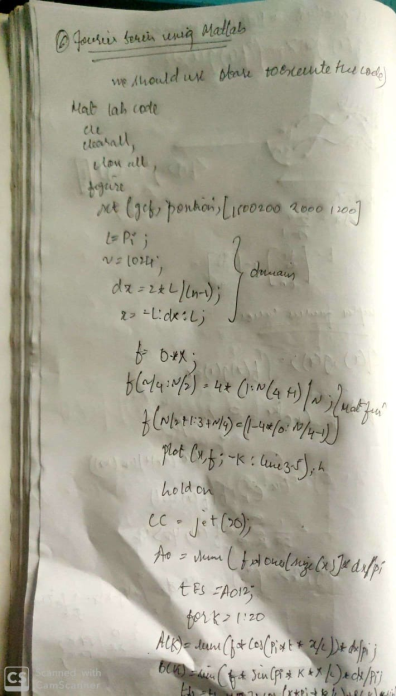 ⑥ Fourier Series using Matlab
we should use to execute the code)
Mat lab code
clc
clearall,
close all,
figure
set (gcf, 'position, [1500 200 2000 1200]
L = Pi ;
N = 1024;
dx = 2*L/(N-1);
x = -L:dx:L;
} domain
f = 0*x;
f(N/4:N/2) = 4* (1:N/4+1)/N ;
f(N/2+1:3*N/4) = (1-4*(0:N/4-1)
plot (x,f; -k :
hold on
CC = jet(20);
Ao = sum (f.*ones(size(x)]* dx/pi
for k = 1:20
A(k) = sum (f * Cos(Pi*k * x/L))* dx/pi;
(f * Sin (Pi * K * x/L)* dx/pi)
CS Scanned with
CamScanner